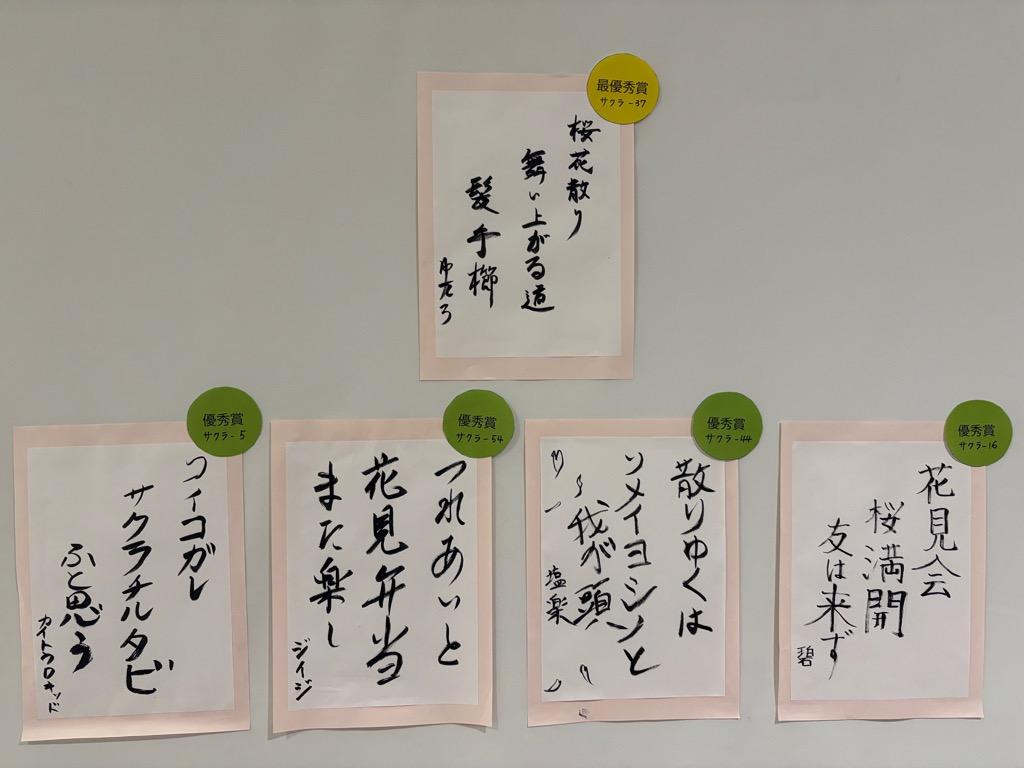 最優秀賞
サクラ-37
桜花散り
舞い上がる道
髪手櫛
優秀賞
サクラ-5
コイコガレ
サクラチルタビ
ふと思う
優秀賞
サクラ-54
つれあいと
花見弁当
また楽し
ジイジ
優秀賞
サクラ-44
散りゆくは
ソメイヨシノと
我が頭
塩楽
優秀賞
サクラ-16
花見会
桜満開
友は来ず
碧